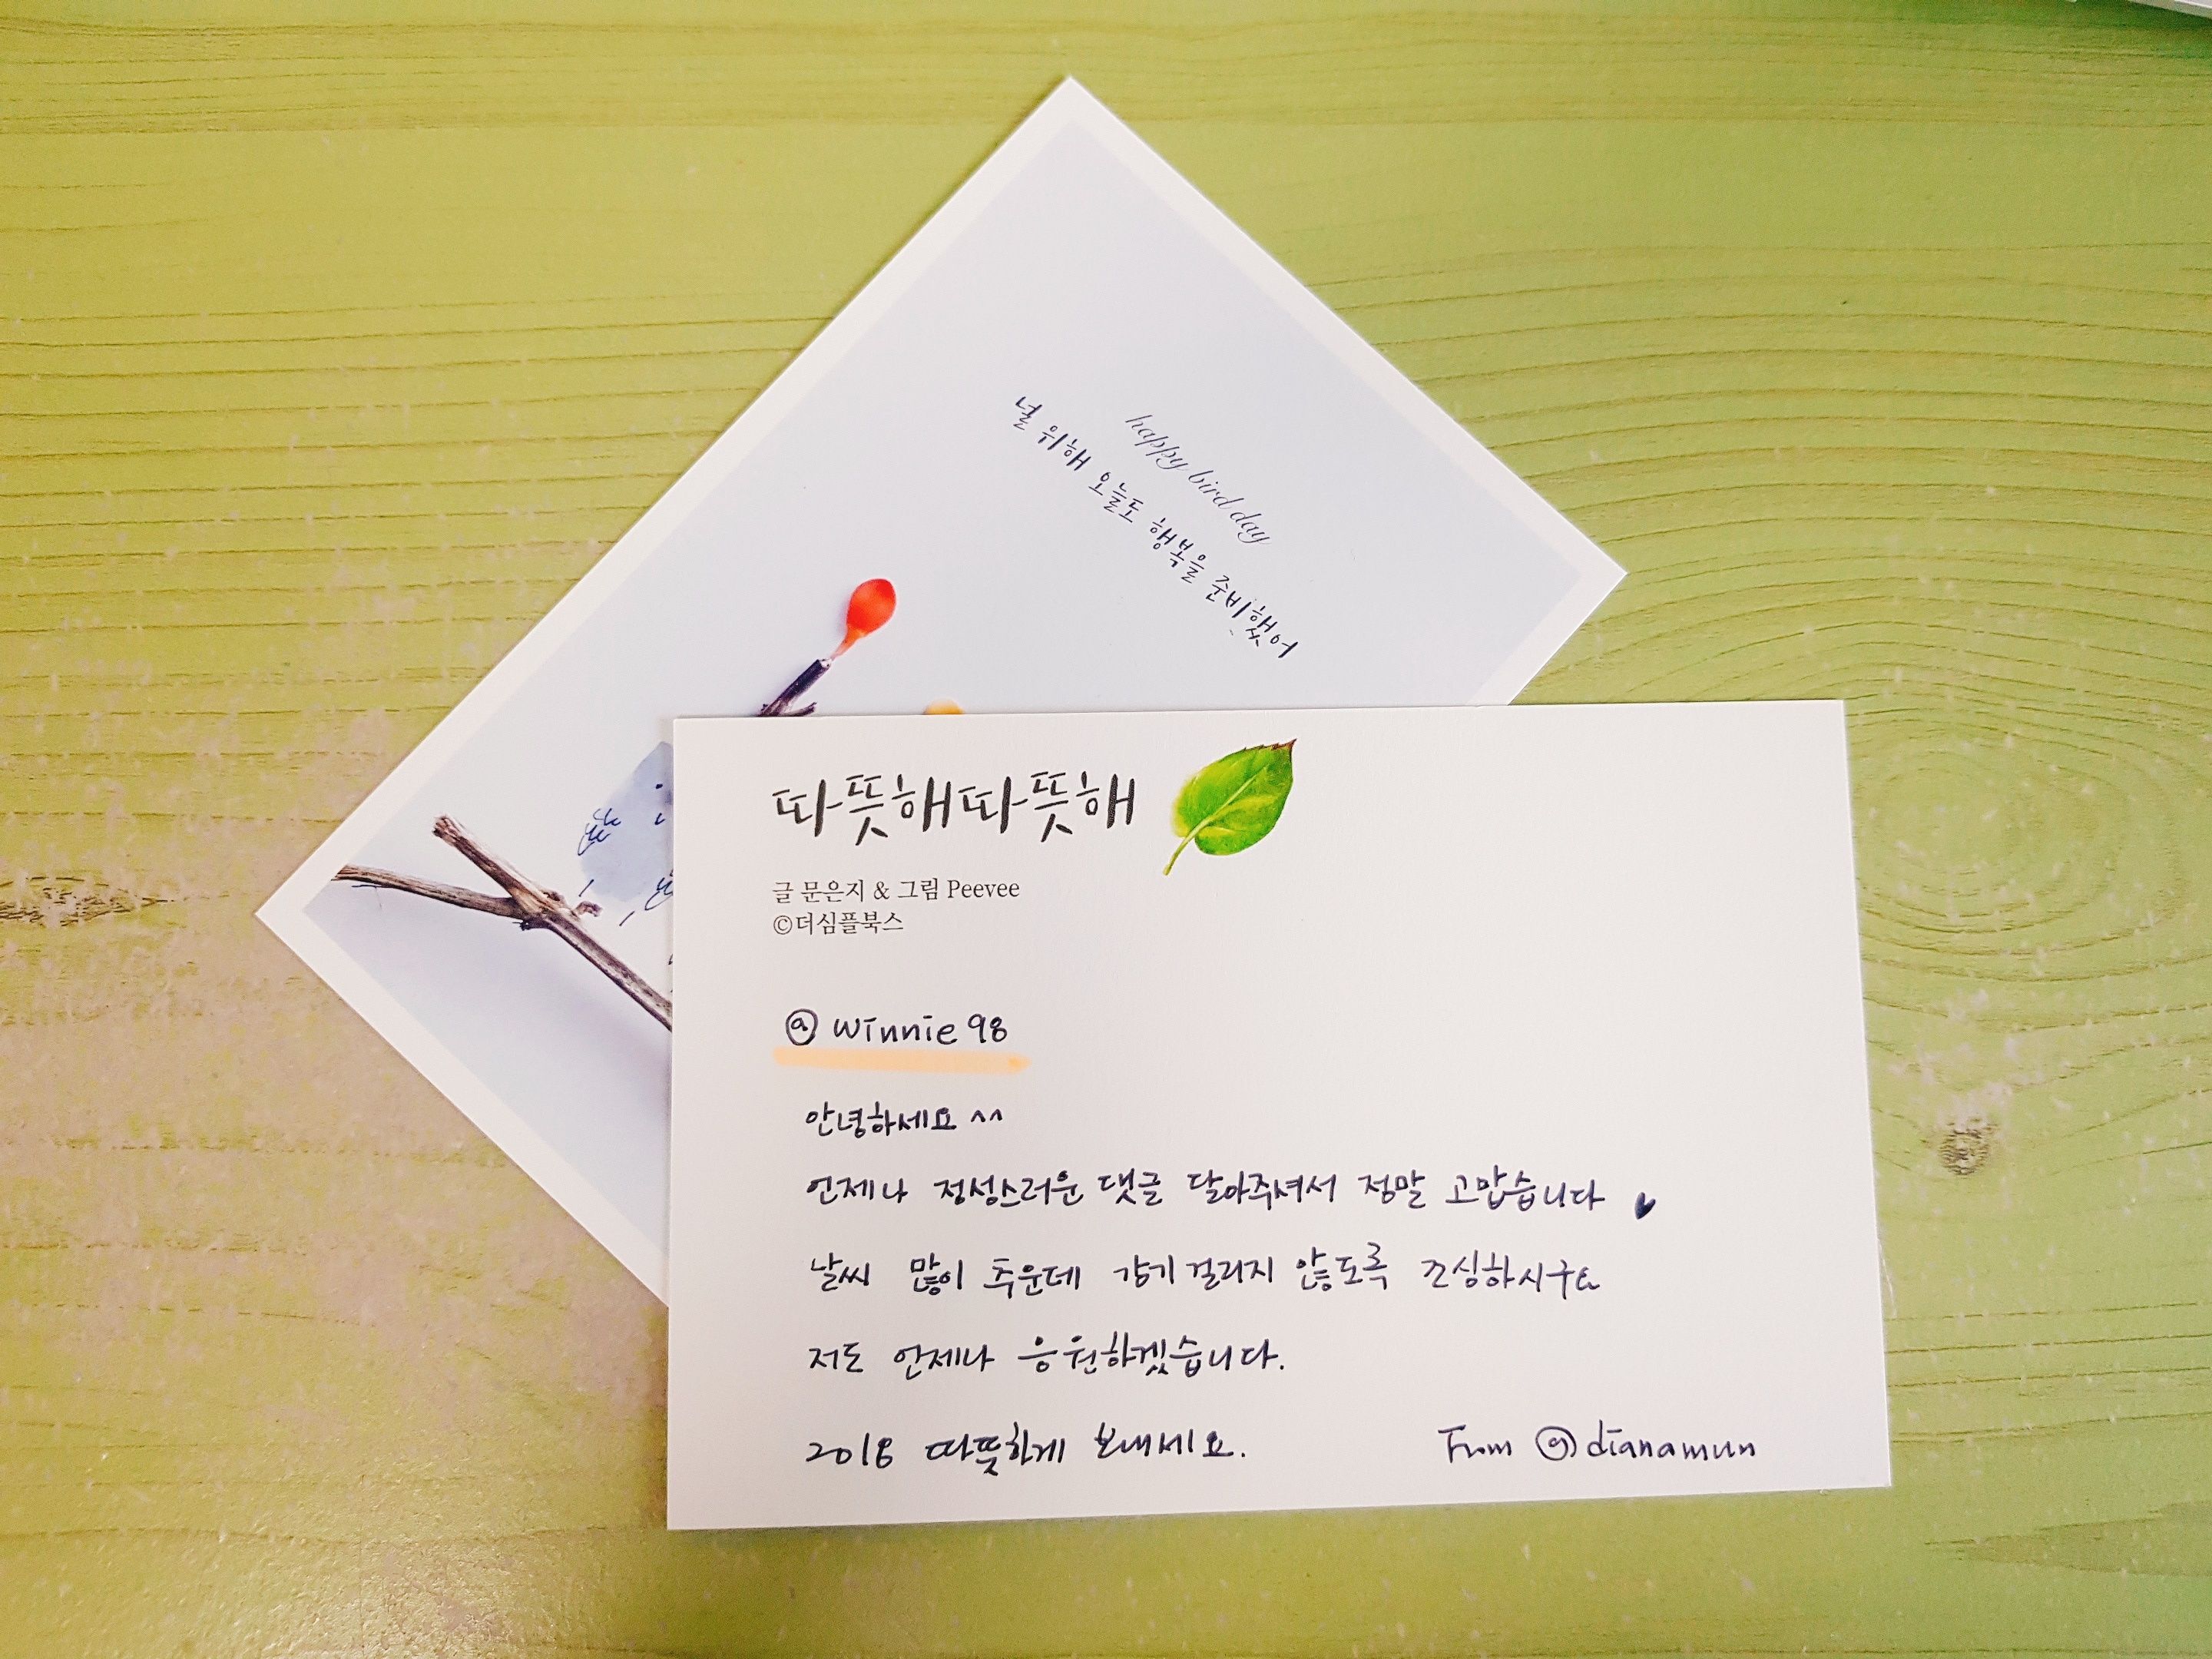 happy bird day
널 위해 오늘도 행복을 준비했어
따뜻해따뜻해
글 문은지 & 그림 Peevee
©더심플북스
@winnie98
안녕하세요 ^^
언제나 정성스러운 댓글 달아주셔서 정말 고맙습니다 ♥
날씨 많이 추운데 감기걸리지 않도록 조심하시구요
저도 언제나 응원하겠습니다.
2018 따뜻하게 보내세요.
From @dianamun